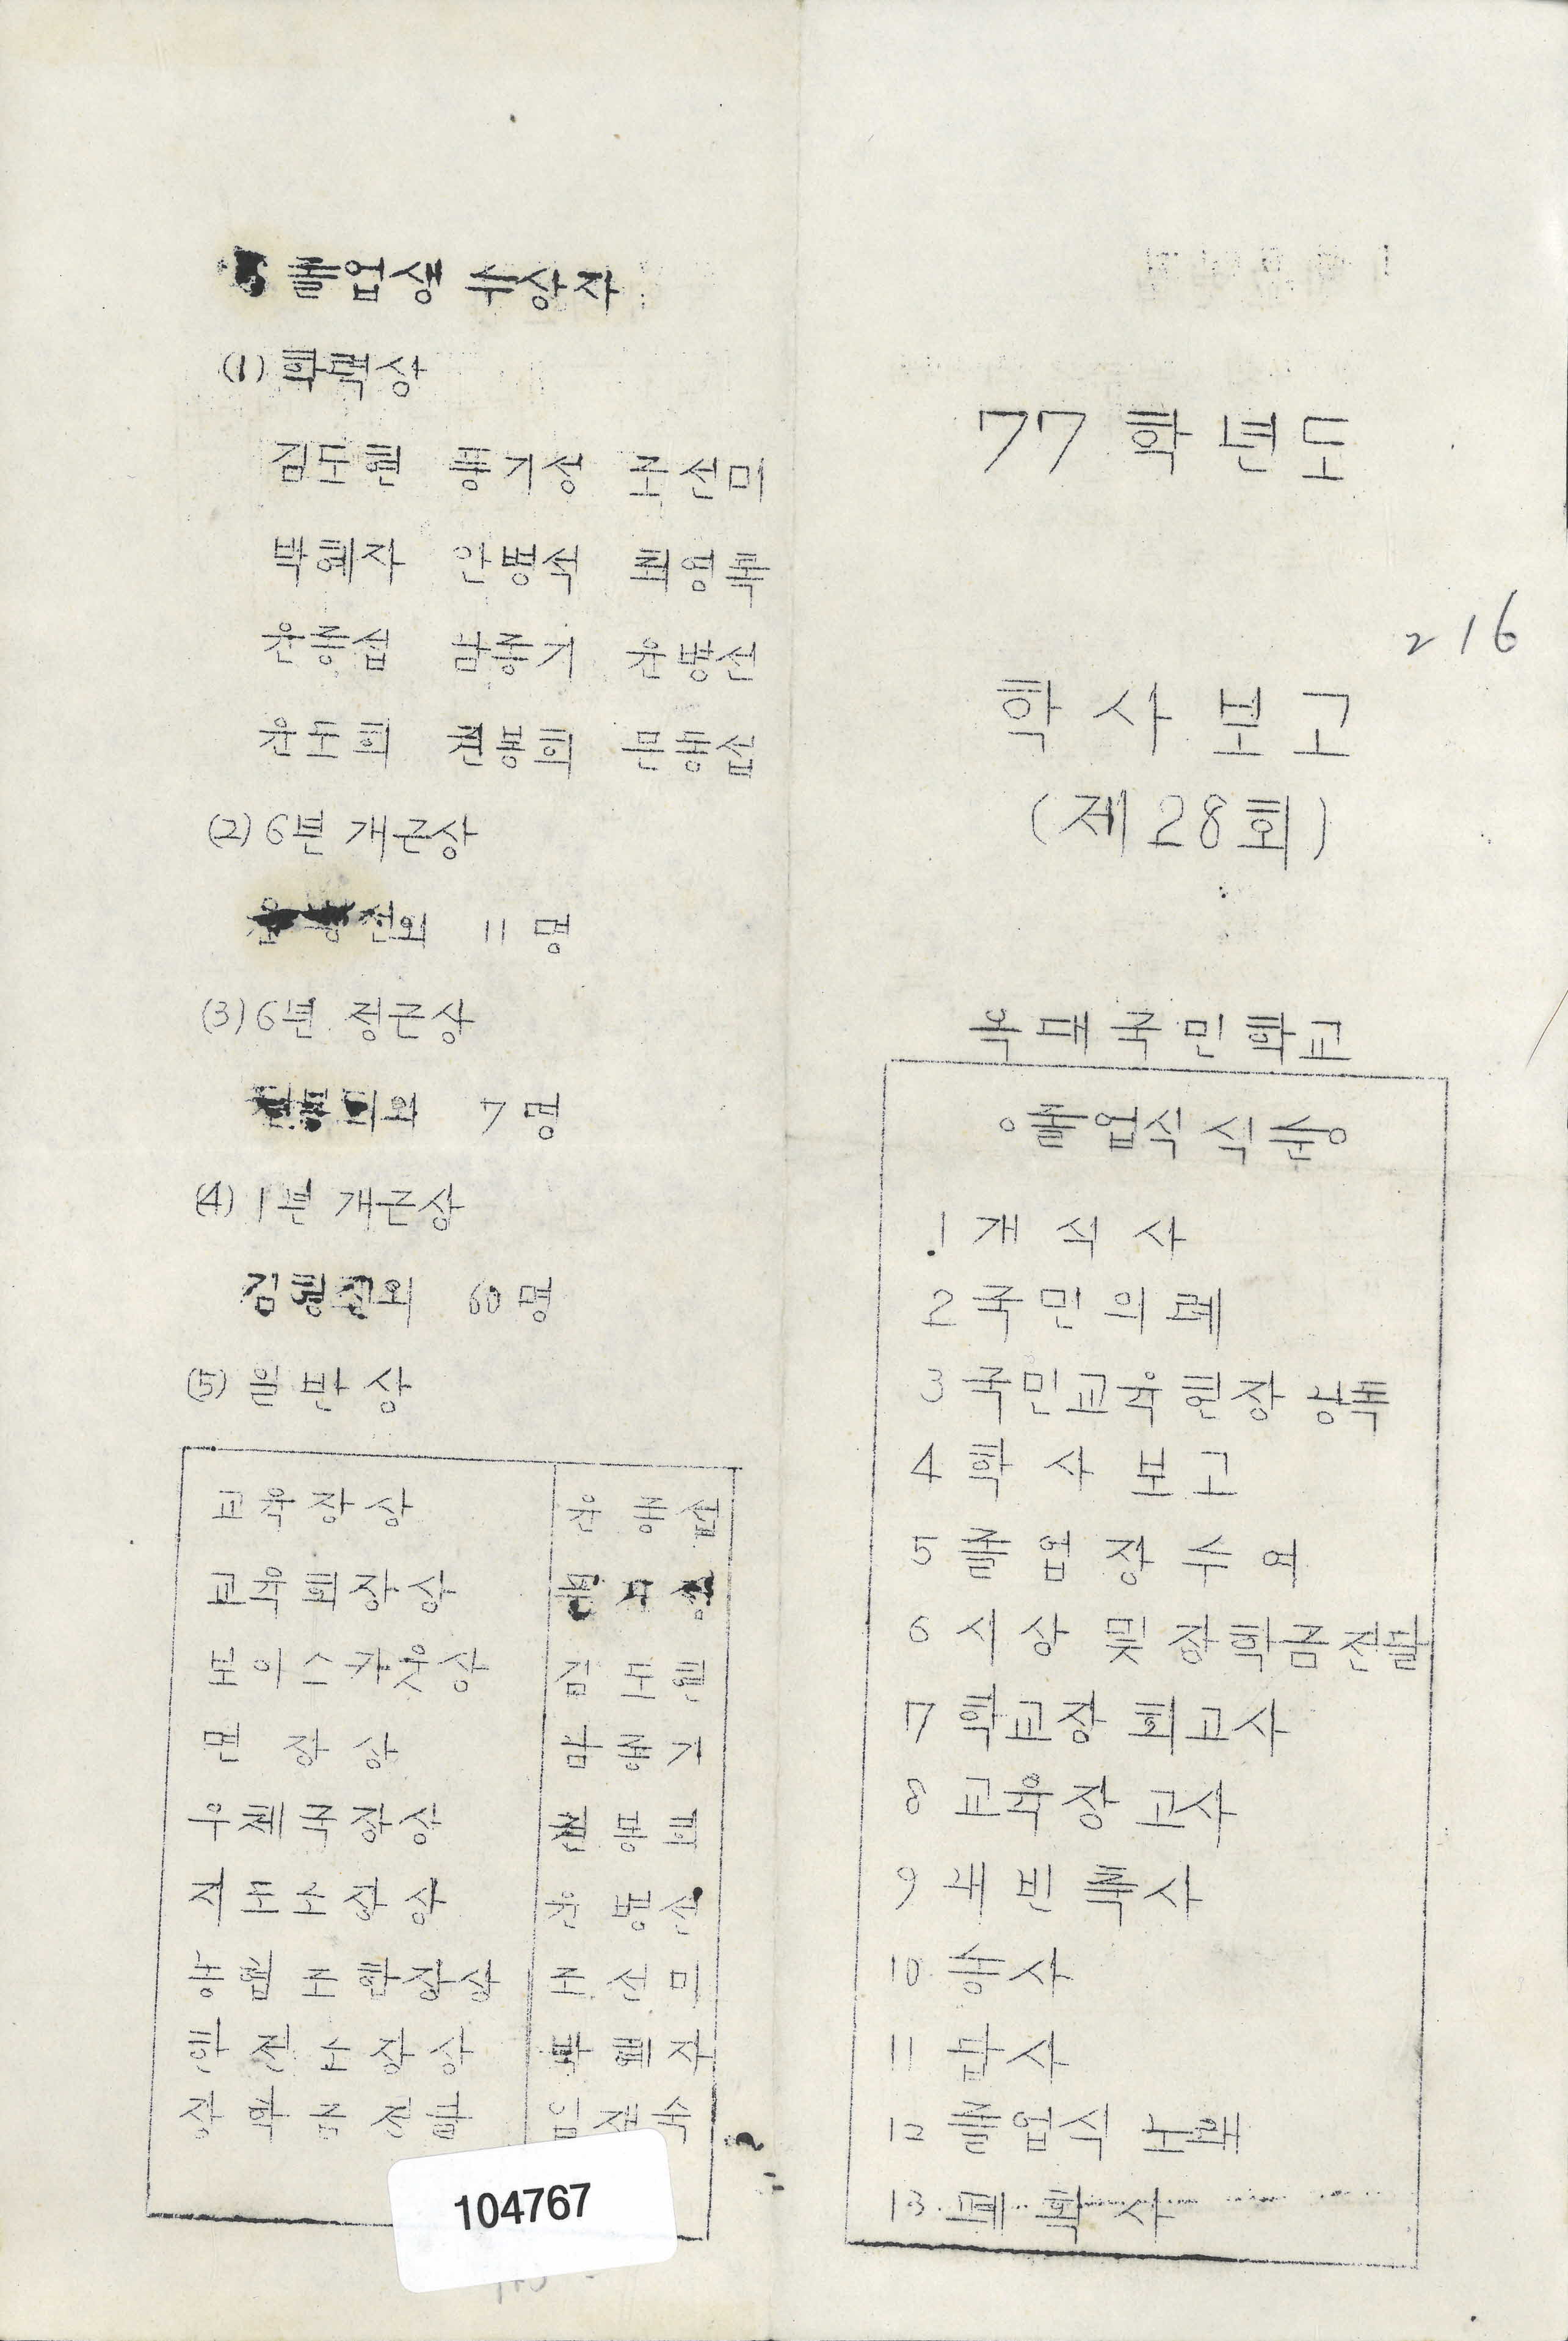 졸업생 수상자
(1) 학력상
김도현 홍기성 조선미
박혜자 안병석 최영록
윤종섭 남종기 윤봉선
윤도희 권봉희 문동섭
(2) 6년 개근상
선외 11명
(3) 6년 정근상
외 7명
(4) 1년 개근상
외 60명
(5) 일반상
교육장상 윤종섭
교육회장상
보이스카웃상 김도현
면장상 남종기
우체국장상 권봉희
지도소장상 윤봉선
농협조합장상 조선미
한전소장상 박혜자
장학금전달 임재숙
104767
77 학년도
216
학사보고
(제28회)
옥대국민학교
○졸업식 식순○
1 개식사
2 국민의례
3 국민교육헌장 낭독
4 학사보고
5 졸업장 수여
6 시상 및 장학금전달
7 학교장 회고사
8 교육장 고사
9 내빈축사
10 송사
11 답사
12 졸업식 노래
13 폐회사